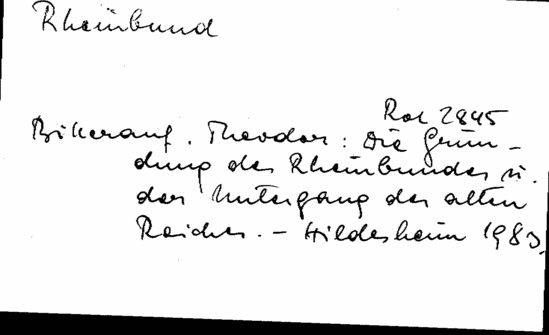 Rheinbund
Rok 2845
Bitterauf, Theodor: Die Grün-
dung des Rheinbundes u.
der Untergang des alten
Reiches. – Hildesheim 1983.